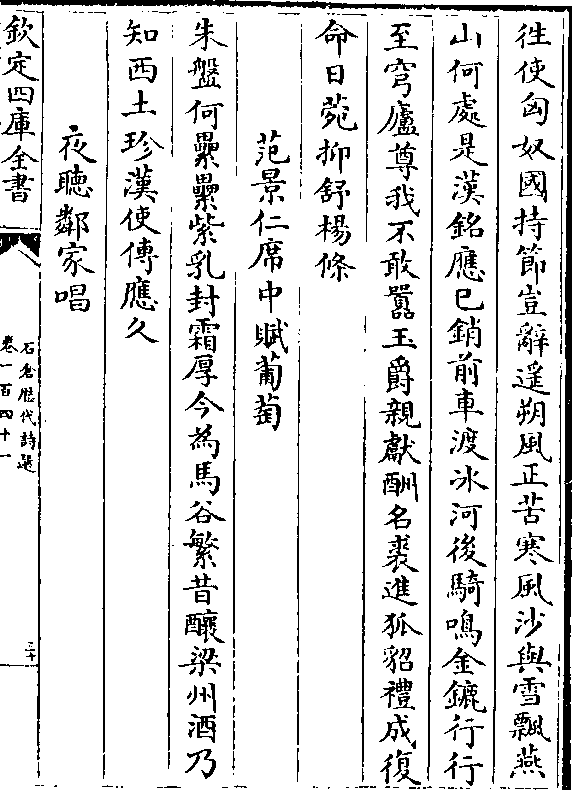 徃使匈奴國持節豈辭遙朔風正苦寒風沙與雪飄燕
山何處是漢銘應已銷前車渡冰河後騎鳴金鑣行行
至穹廬尊我不敢囂玉爵親獻酬名裘進狐貂禮成復
命日菀抑舒楊條
范景仁席中賦葡萄
朱盤何纍纍紫乳封霜厚今為馬谷繁昔釀梁州酒乃
知西土珍漢使傳應久
夜聽鄰家唱
欽定四庫全書
石倉歷代詩選
卷一百四十一
三十